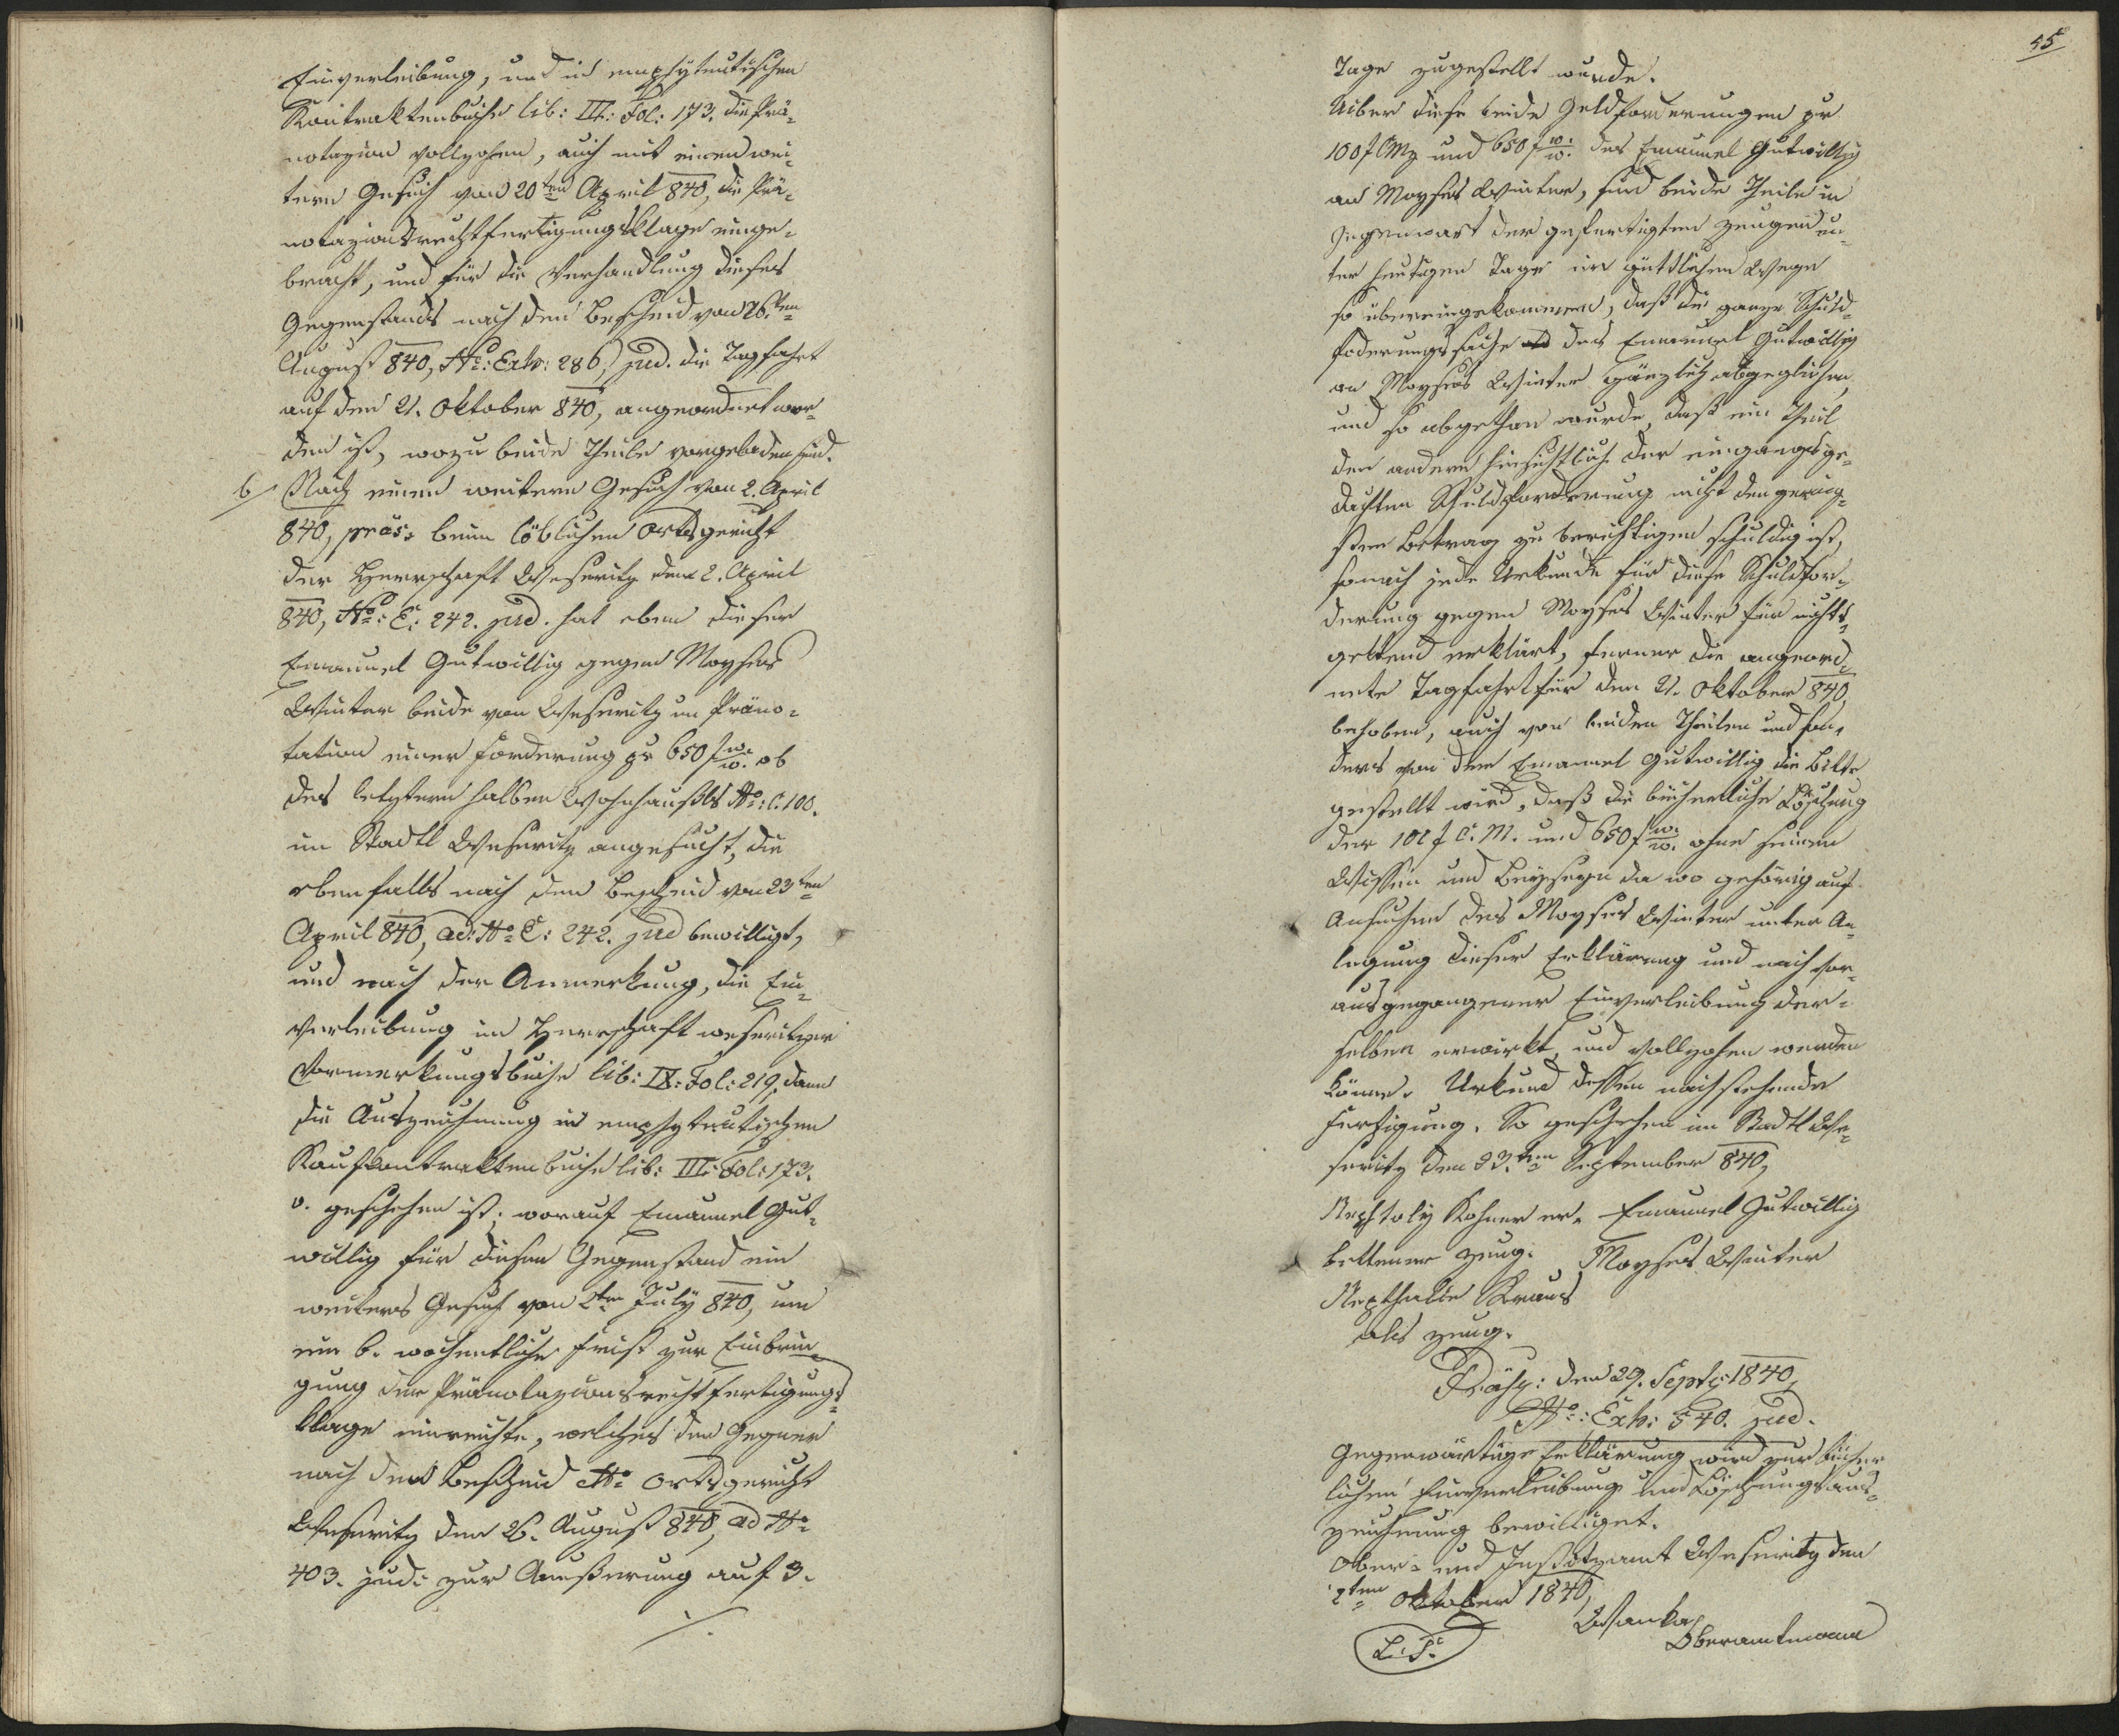 Einverleibung, und in emphyteutischen
Kontraktenbuche lib: III: Fol: 173. die Prä-
notazion vollzohen, auch mit einen wei-
tern Gesuch vom 20ten April 840, die Prä-
notazionsrechtfertigungsklage einge-
bracht, und für die Verhandlung dieses
Gegenstands nach den Bescheid vom 26.ten
August 840, No: Exh: 286, jud. die Tagfahrt
auf den 21. Oktober 840, angeordnet wor-
den ist, wozu beide Theile vorgeladen sind.
b/ Nach einen weitern Gesuch vom 2. April
840, präs: beim löblichen Ortsgericht
der Herrschaft Weseritz den 2. April
840, No: E: 242. jud. hat eben dieser
Emanuel Gutwillig gegen Moyses
Winter beide von Weseritz um Präno-
tation einer Forderung pr 650 f w. w. ob
des letztern halben Wohnhaußls No: C. 100.
im Stadtl Weseritz angesucht, die
ebenfalls nach dem Bescheid vom 23ten
April 840, ad: No E: 242. jud bewilligt,
und nach der Anmerkung, die Ein-
verleibung im Herrschaft weseritzer
Vormerkungsbuche lib: IX: Fol: 219, dann
die Auszeichnung in emphyteutischen
Kaufkontraktenbuche lib: III: Fol: 173.
v. geschehen ist, worauf Emanuel Gut-
willig für diesen Gegenstand ein
weiteres Gesuch vom 2ten July 840, um
eine 6. wochentliche Frist zur Einbrin-
gung der Pränotazionsrechtfertigungs-
klage einreichte, welches den Gegner
nach dem Bescheid No Ortsgericht
Weseritz den 26. August 840, ad No
403. jud: zur Aeußerung auf 3.
./.
55
Tage zugestellt wurde.
Uiber diese beide Geldforderungen pr
100 f CMz und 650 f w. w. des Emanuel Gutwillig
an Moyses Winter, sind beide Theile in
Gegenwart der gefertigten Zeugen un-
ter heutigen Tage im güttlichen Wege
so übereingekommen, daß die ganze Schuld-
foderungssache des Emanuel Gutwillig
an Moyses Winter gänzlich abgeglichen,
und so abgethan wurde, daß ein Theil
den andern hinsichtlich der eingangsge-
dachten Schuldforderung nicht den gering-
sten Betrag zu berichtigen schuldig ist,
sonach jede Urkunde für diese Schuldfor-
derung gegen Moyses Winter für nichts-
geltend erklärt, ferner die angeord-
nete Tagfahrt für den 21. Oktober 840,
behoben, auch von beiden Theilen und son-
ders von dem Emanuel Gutwillig die Bitte
gestellt wird, daß die bücherliche Löschung
der 100 f C. M. und 650 f w. w. ohne seinem
Wissen und Beyseyn da wo gehörig auf
Ansuchen des Moyses Winter unter An-
legung dieser Erklärung und nach vor-
ausgegangener Einverleibung der-
selben erwirkt, und vollzohen werden
könne. Urkund dessen nachstehende
Fertigung. So geschehen im Stadtl We-
seritz den 23.ten September 840,
Nephtaly Kohner er- Emanuel Gutwillig
bettener Zeug. Moyses Winter
Nepthalie Kraus
als Zeug.
Präsz: den 29. Septz: 1840,
No: Exh: 540. jud.
Gegenwärtige Erklärung wird zur bücher
lichen Einverleibung und Löschungsaus-
zeichnung bewilliget.
Ober- und Justizamt Weseritz den
2ten Oktober 1840,
Wanka
Oberamtmann
L. S.